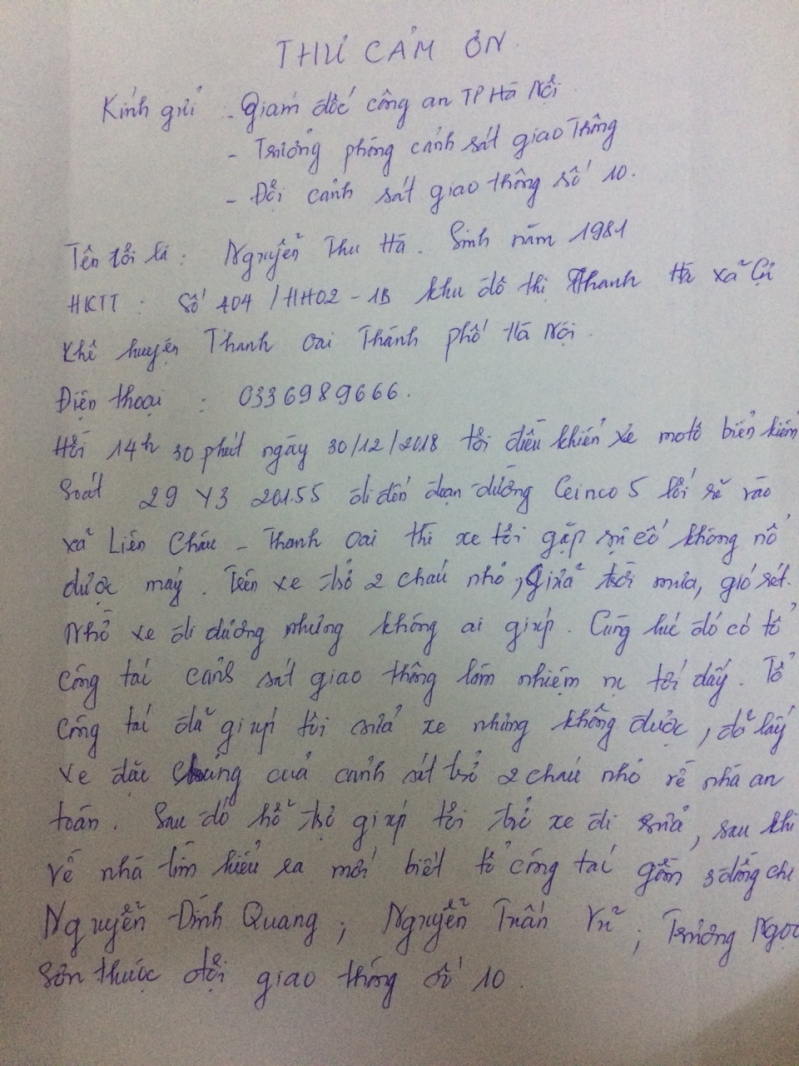 THƯ CẢM ƠN
Kính gửi - Giám đốc công an TP Hà Nội
- Trưởng phòng cảnh sát giao Thông
- Đội cảnh sát giao thông số 10.
Tên tôi là : Nguyễn Thu Hà. Sinh năm 1981
HKTT : Số 404 / HH02 - 1B khu đô thị Thanh Hà xã Cự
Khê huyện Thanh Oai Thành phố Hà Nội.
Điện thoại : 0336989666.
Hồi 14h 30 phút ngày 30/12/2018 tôi điều khiển xe môtô biển kiểm
Soát 29 Y3 20155 đi đến đoạn đường Ceinco 5 lối rẽ vào
xã Liên Châu - Thanh Oai thì xe tôi gặp sự cố không nổ
được máy. Trên xe trở 2 cháu nhỏ, Giữa trời mưa, gió rét.
Nhờ xe đi đường nhưng không ai giúp. Cùng lúc đó có tổ
công tác cảnh sát giao thông làm nhiệm vụ tới đấy. Tổ
công tác đã giúp tôi sửa xe nhưng không được, đã lấy
xe đặc chủng của cảnh sát trở 2 cháu nhỏ về nhà an
toàn. Sau đó hỗ trợ giúp tôi trở xe đi sửa, sau khi
về nhà tìm hiểu ra mới biết tổ công tác gồm 3 đồng chí
Nguyễn Đình Quang ; Nguyễn Trần Vũ ; Trương Ngọc
Sơn thuộc đội giao thông số 10.